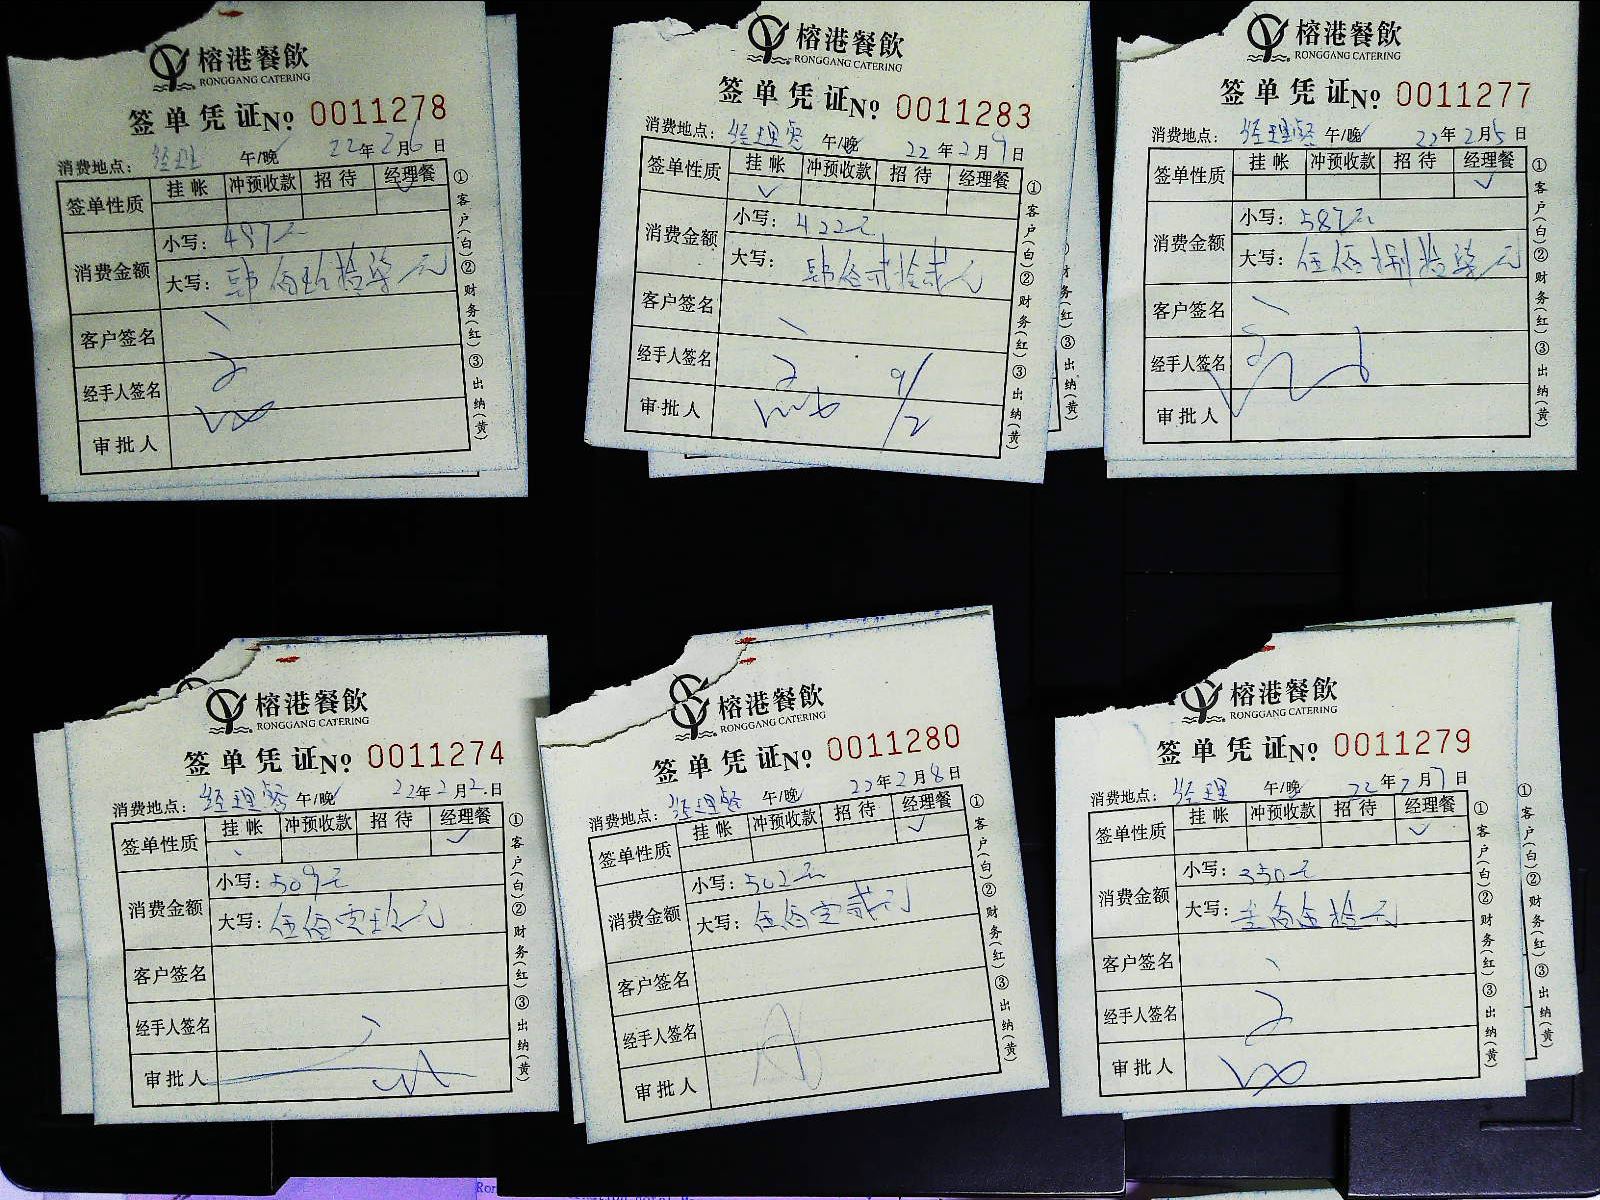 榕港餐飲
RONGGANG CATERING
签单凭证No. 0011278
消费地点：经理 午/晚 22年2月6日
签单性质 挂帐 冲预收款 招待 经理餐
✓
消费金额 小写：497元
大写：肆佰玖拾柒元
客户签名
经手人签名
审批人
①客户(白)②财务(红)③出纳(黄)
榕港餐飲
RONGGANG CATERING
签单凭证No. 0011283
消费地点：经理餐 午/晚 22年2月9日
签单性质 挂帐 冲预收款 招待 经理餐
✓
消费金额 小写：422元
大写：肆佰贰拾贰元
客户签名
经手人签名
审批人 9/2
①客户(白)②财务(红)③出纳(黄)
榕港餐飲
RONGGANG CATERING
签单凭证No. 0011277
消费地点：经理餐 午/晚 22年2月5日
签单性质 挂帐 冲预收款 招待 经理餐
✓
消费金额 小写：587元
大写：伍佰捌拾柒元
客户签名
经手人签名
审批人
①客户(白)②财务(红)③出纳(黄)
榕港餐飲
RONGGANG CATERING
签单凭证No. 0011274
消费地点：经理餐 午/晚 22年2月2日
签单性质 挂帐 冲预收款 招待 经理餐
✓
消费金额 小写：509元
大写：伍佰零玖元
客户签名
经手人签名
审批人
①客户(白)②财务(红)③出纳(黄)
榕港餐飲
RONGGANG CATERING
签单凭证No. 0011280
消费地点：经理餐 午/晚 22年2月8日
签单性质 挂帐 冲预收款 招待 经理餐
✓
消费金额 小写：502元
大写：伍佰零贰元
客户签名
经手人签名
审批人
①客户(白)②财务(红)③出纳(黄)
榕港餐飲
RONGGANG CATERING
签单凭证No. 0011279
消费地点：经理 午/晚 22年2月7日
签单性质 挂帐 冲预收款 招待 经理餐
✓
消费金额 小写：350元
大写：叁佰伍拾元
客户签名
经手人签名
审批人
①客户(白)②财务(红)③出纳(黄)